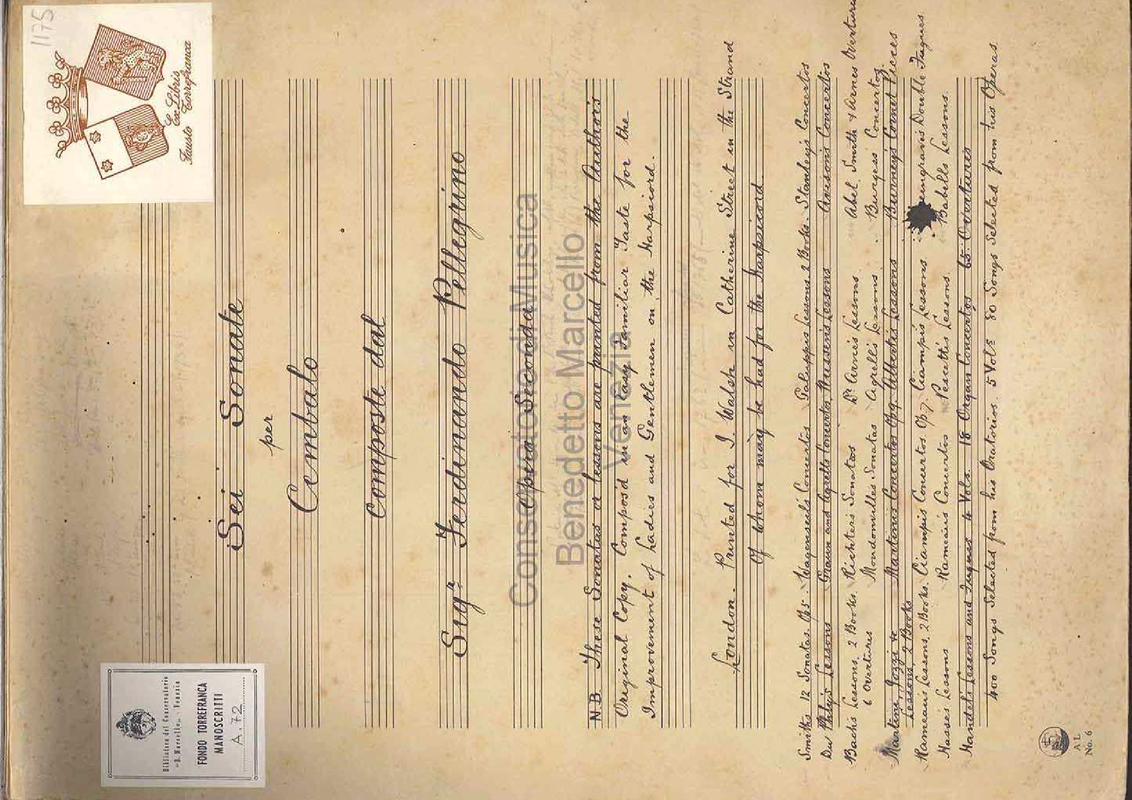 1175
Ex Libris
Fausto Torrefranca
Biblioteca del Conservatorio
"B. Marcello" - Venezia
FONDO TORREFRANCA
MANOSCRITTI
A. 72
Sei Sonate
per
Cembalo
Composte dal
Sigr. Ferdinando Pellegrino
Opera Seconda
Conservatorio di Musica
Benedetto Marcello
Venezia
N.B. These Sonatas or Lessons are printed from the Author's
Original Copy. Compos'd in an easy Familiar Taste for the
Improvement of Ladies and Gentlemen on the Harpsicord.
London. Printed for I. Walsh in Catherine Street in the Strand
Of whom may be had for the Harpsicord
Smiths 12 Sonatas Op. 5. Wagenseils Concertos Galuppis Lessons 2 Books. Stanleys Concertos
Du Phlys Lessons Graun and Agrells Concertos Lessons Avisons Concertos
Bachs Lessons, 2 Books. Richters Sonatas Dr. Arnes Lessons Abel Smith & Arnes Overtures
6 Overtures Mondonvilles Sonatas Agrells Lessons Burgess Concertos
Martini Concertos Albertis Lessons Burneys Cornet Pieces
Lessons, 2 Books
Rameaus Lessons, 2 Books. Ciampis Concertos Op. 7. Ciampis Lessons. Double Fugues
Hasses Lessons Rameaus Concertos Pescettis Lessons. Babells Lessons.
Handels Lessons and Fugues 4 Vols. 18 Organ Concertos 65 Overtures
400 Songs Selected from his Oratorios. 5 Vols. 80 Songs Selected from his Operas.
A L
No. 6